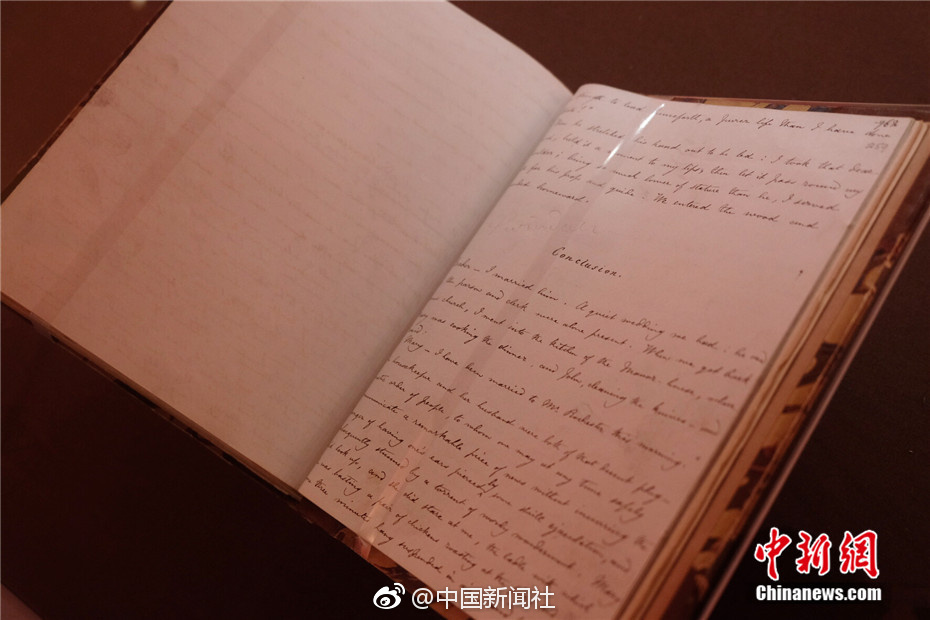 to lead henceforth, a purer life than I have done
he stretched his hand out to be led: I took that dear
held it a moment to my lips then let it pass round my
being so much lower of stature than he, I served
for his prop and guide. We entered the wood and
homeward.
Conclusion.
I married him. A quiet wedding we had: he and
the parson and clerk were alone present. When we got back
church, I went into the kitchen of the Manor-house, where
was cooking the dinner, and John, cleaning the knives, and
Mary - I have been married to Mr Rochester this morning."
housekeeper and her husband were both of that decent phleg-
order of people, to whom one may at any time safely
communicate a remarkable piece of news without incurring the
of having one's ears pierced by some shrill ejaculation, and
stunned by a torrent of wordy wonderment. Mary
look up, and she did stare at me, the ladle with which
was basting a pair of chickens roasting at the
three minutes hang suspended in
@中国新闻社
中新網
Chinanews.com